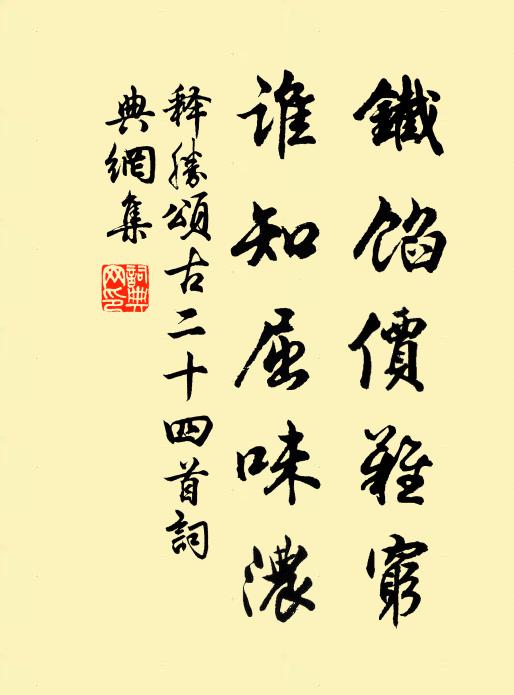 鐵餡價難窮
誰知屈味濃
释勝頌古二十四首詞
典網集
詞典网印